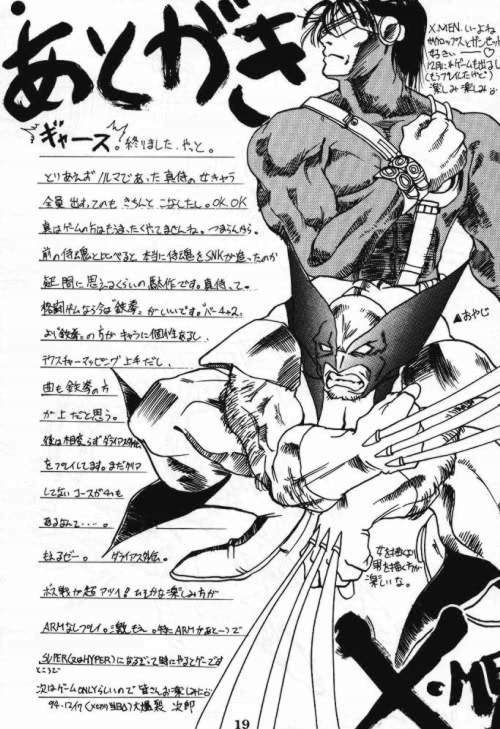 あとがき
X.MEN.いいよね
サイクロップスとガンビットが
すきい ——♡
12月に本ゲームも出るし
(もうプレイしたけど)
楽しみ楽しみ。
ギャース。終りました.やっと。
とりあえずノルマであった真侍の女キャラ
全員出すってのもきちんとこなしたし。OK.OK
真はゲームの方はもうまったくやってませんね。つまらんから。
前の侍魂と比べると本当に侍魂をSNKが造ったのか
疑問に思えるくらいの駄作です。真侍って。
格闘ゲームなら今は"鉄拳"がいいです。バーチャ2
より"鉄拳"の方がキャラに個性あるし、
テクスチャーマッピング上手だし、
曲も鉄拳の方
が上だと思う。
後は相変らずダライアス外伝
をプレイしてます。まだクリア
してないコースが
あるなんて・・・。
もえるぜー。ダライアス外伝。
ボス戦が超アツイ! 楽しみ方が
ARMなしプレイ。特にARMがあと一つで
SUPER(又はHYPER)になるって時に
ところで
次はゲームONLYらしいので皆さんお楽しみに
94.12/17 大爆発 次郎
▲おやじ
女を描くより
男を描く方が
楽しいな。
X・ME
19